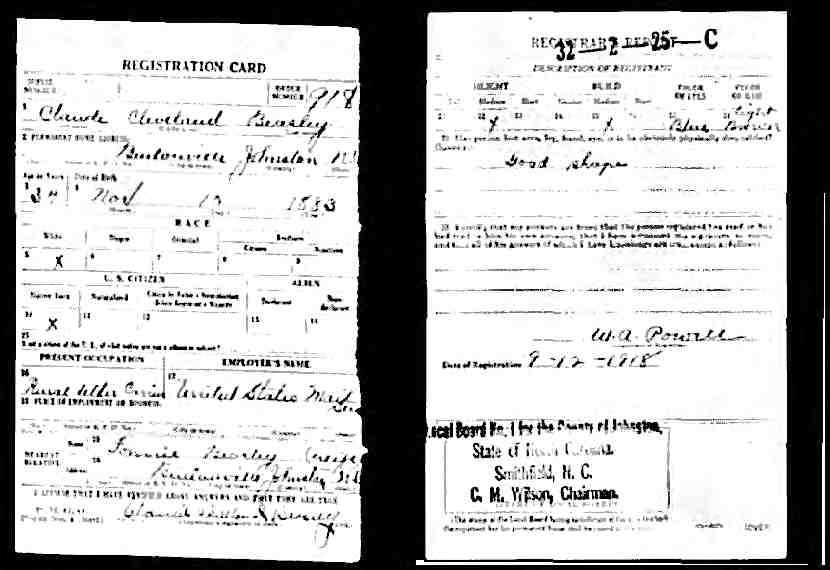 REGISTRATION CARD
SERIAL NUMBER
ORDER NUMBER 918
1 Claude Cleveland Beasley
2 PERMANENT HOME ADDRESS
Bentonville Johnston N.C.
Age in Years Date of Birth
3 34 4 Nov 19 1883
RACE
White Negro Oriental Indian
Citizen Noncitizen
5 X 6 7 8 9
U. S. CITIZEN ALIEN
Native Born Naturalized Citizen by Father's Naturalization Before Registrant's Majority Declarant Non-declarant
10 X 11 12 13 14
15
If not a citizen of the U. S., of what nation are you a citizen or subject?
PRESENT OCCUPATION EMPLOYER'S NAME
16 Rural letter Carrier 17 United States Mail
18 PLACE OF EMPLOYMENT OR BUSINESS
NEAREST RELATIVE
Name 19 Fannie Beasley
Address 20 Bentonville Johnston N.C.
I AFFIRM THAT I HAVE VERIFIED ABOVE ANSWERS AND THAT THEY ARE TRUE
Claude Cleveland Beasley
REGISTRAR'S REPORT
32-2-25-C
DESCRIPTION OF REGISTRANT
HEIGHT BUILD COLOR OF EYES COLOR OF HAIR
Tall Medium Short Slender Medium Stout
21 22 X 23 24 25 X 26 27 Blue 28 Light Brown
29 Has person lost arm, leg, hand, eye, or is he obviously physically disqualified?
Good shape
30 I certify that my answers are true; that the person registered has read or has
had read to him his own answers; that I have witnessed his signature or mark,
and that all of his answers of which I have knowledge are true, except as follows:
W. A. Powell
Date of Registration 9-12-1918
Local Board No. 1 for the County of Johnston,
State of North Carolina
Smithfield, N. C.
C. M. Wilson, Chairman.
(The stamp of the Local Board having jurisdiction of the area in which
the registrant has his permanent home shall be placed in this box.)
(OVER)